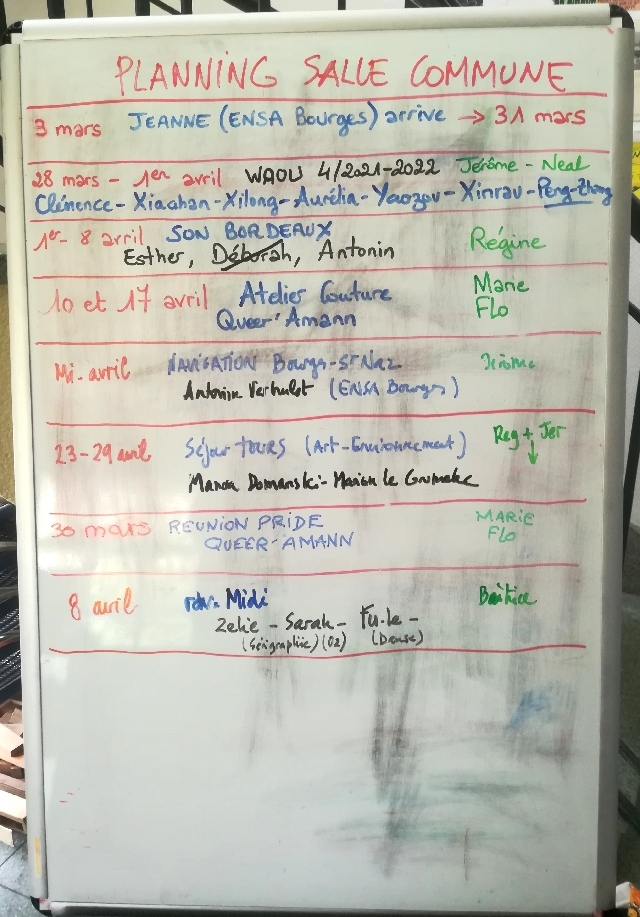 PLANNING SALLE COMMUNE
3 mars JEANNE (ENSA Bourges) arrive → 31 mars
28 mars - 1er avril WAOU 4/2021-2022 Jérôme - Neal
Clémence - Xiaohan - Xilong - Aurélia - Yaozou - Xinrau - Peng-Zhong
1er - 8 avril SON BORDEAUX Régine
Esther, Déborah, Antonin
10 et 17 avril Atelier Couture Marie
Queer'Amann Flo
Mi-avril NAVIGATION Bourges-St Naz Jérôme
Antonin Verhulst (ENSA Bourges)
23-29 avril Séjour TOURS (Art-Environnement) Reg + Jer
Manon Domanski - Marion le
30 mars REUNION PRIDE MARIE
QUEER-AMANN Flo
8 avril rdv. Midi
Zelie - Sarah - Fu-le -
(Sérigraphie) (02) (Danse)